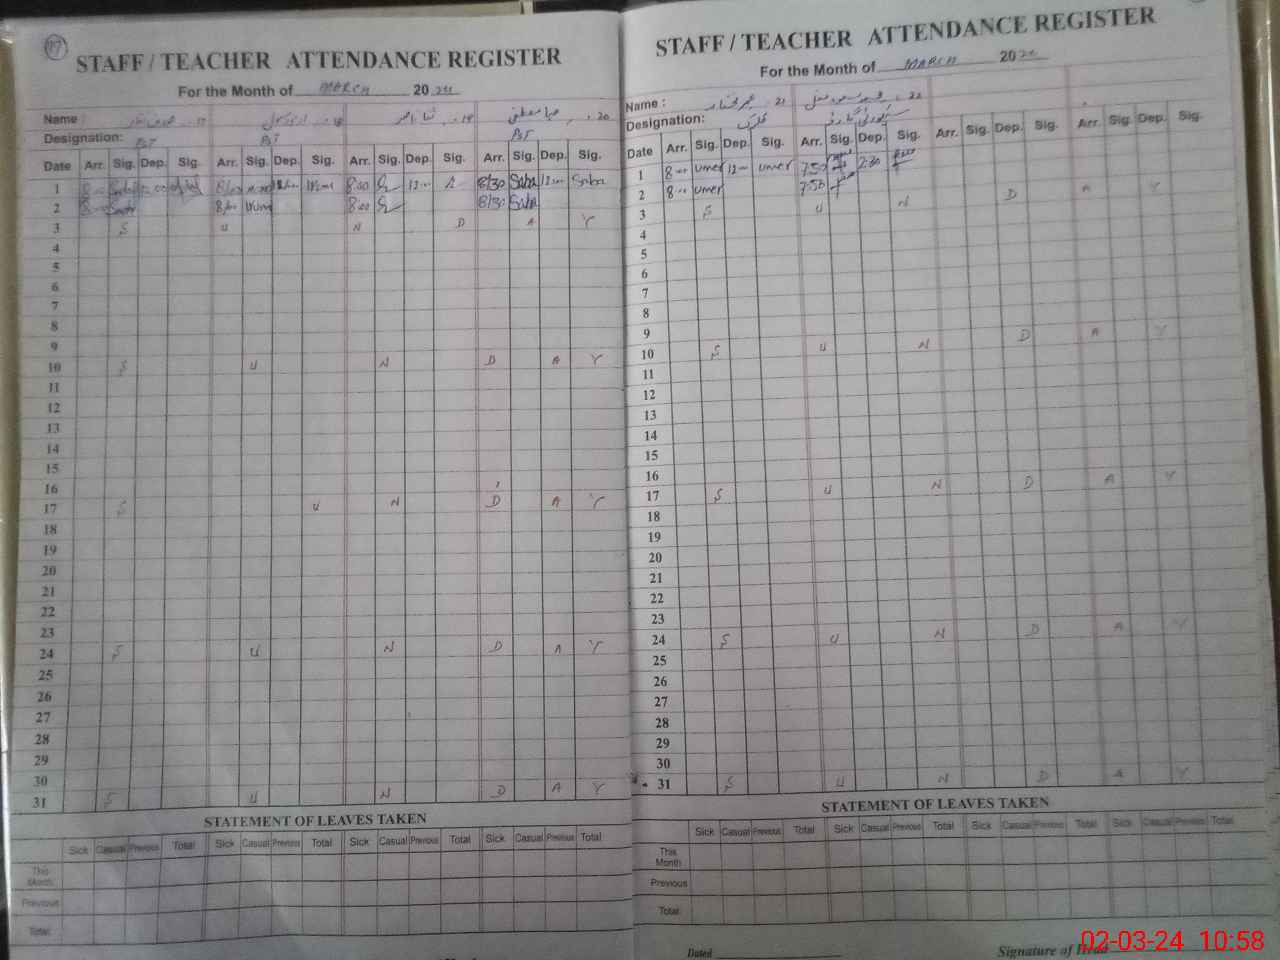 17
STAFF / TEACHER ATTENDANCE REGISTER
For the Month of MARCH 2024
Name : 17 18 19 20
Designation: PST PST PST
Date Arr. Sig. Dep. Sig. Arr. Sig. Dep. Sig. Arr. Sig. Dep. Sig. Arr. Sig. Dep. Sig.
1 8:00 8:00 12:00 8/30 Saba 12:00 Saba
2 8:00 8:00 8/30 Saba
3 S U N D A Y
4
5
6
7
8
9
10 S U N D A Y
11
12
13
14
15
16
17 S U N D A Y
18
19
20
21
22
23
24 S U N D A Y
25
26
27
28
29
30
31 S U N D A Y
STATEMENT OF LEAVES TAKEN
Sick Casual Previous Total Sick Casual Previous Total Sick Casual Previous Total Sick Casual Previous Total
This Month
Previous
Total
STAFF / TEACHER ATTENDANCE REGISTER
For the Month of MARCH 2024
Name : 21 22
Designation: کلرک
Date Arr. Sig. Dep. Sig. Arr. Sig. Dep. Sig. Arr. Sig. Dep. Sig. Arr. Sig. Dep. Sig.
1 8:00 Umer 12:00 Umer 7:50 2:30
2 8:00 Umer 7:50
3 S U N D A Y
4
5
6
7
8
9
10 S U N D A Y
11
12
13
14
15
16
17 S U N D A Y
18
19
20
21
22
23
24 S U N D A Y
25
26
27
28
29
30
31 S U N D A Y
STATEMENT OF LEAVES TAKEN
Sick Casual Previous Total Sick Casual Previous Total Sick Casual Previous Total Sick Casual Previous Total
This Month
Previous
Total
Dated Signature of Head
02-03-24 10:58